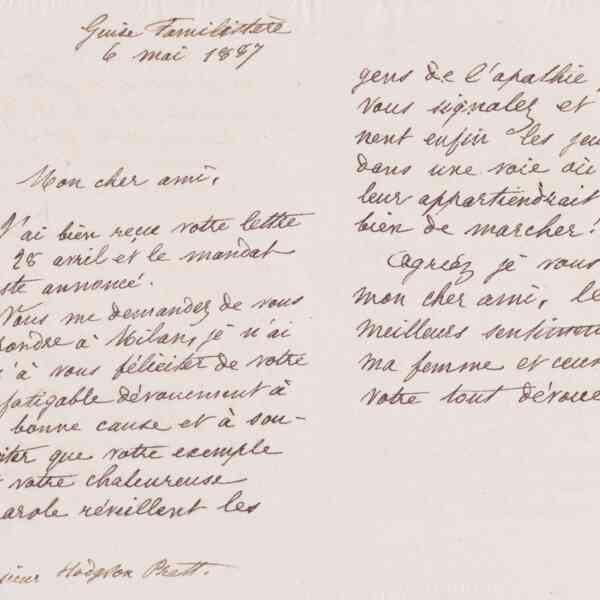 Guise Familistère
6 mai 1887
Mon cher ami,
J'ai bien reçu votre lettre
28 avril et le mandat
ste annoncé.
Vous me demandez de vous
ondre à Milan, je n'ai
'à vous féliciter de votre
fatigable dévouement à
bonne cause et à sou-
iter que votre exemple
votre chaleureuse
arole réveillent les
sieur Hodgson Pratt.
gens de l'apathie
vous signalez et
nent enfin les
dans une voie où
leur appartiendrait
bien de marcher!
Agréez je vous
mon cher ami, le
meilleurs sentimen
ma femme et ceux
votre tout dévoué